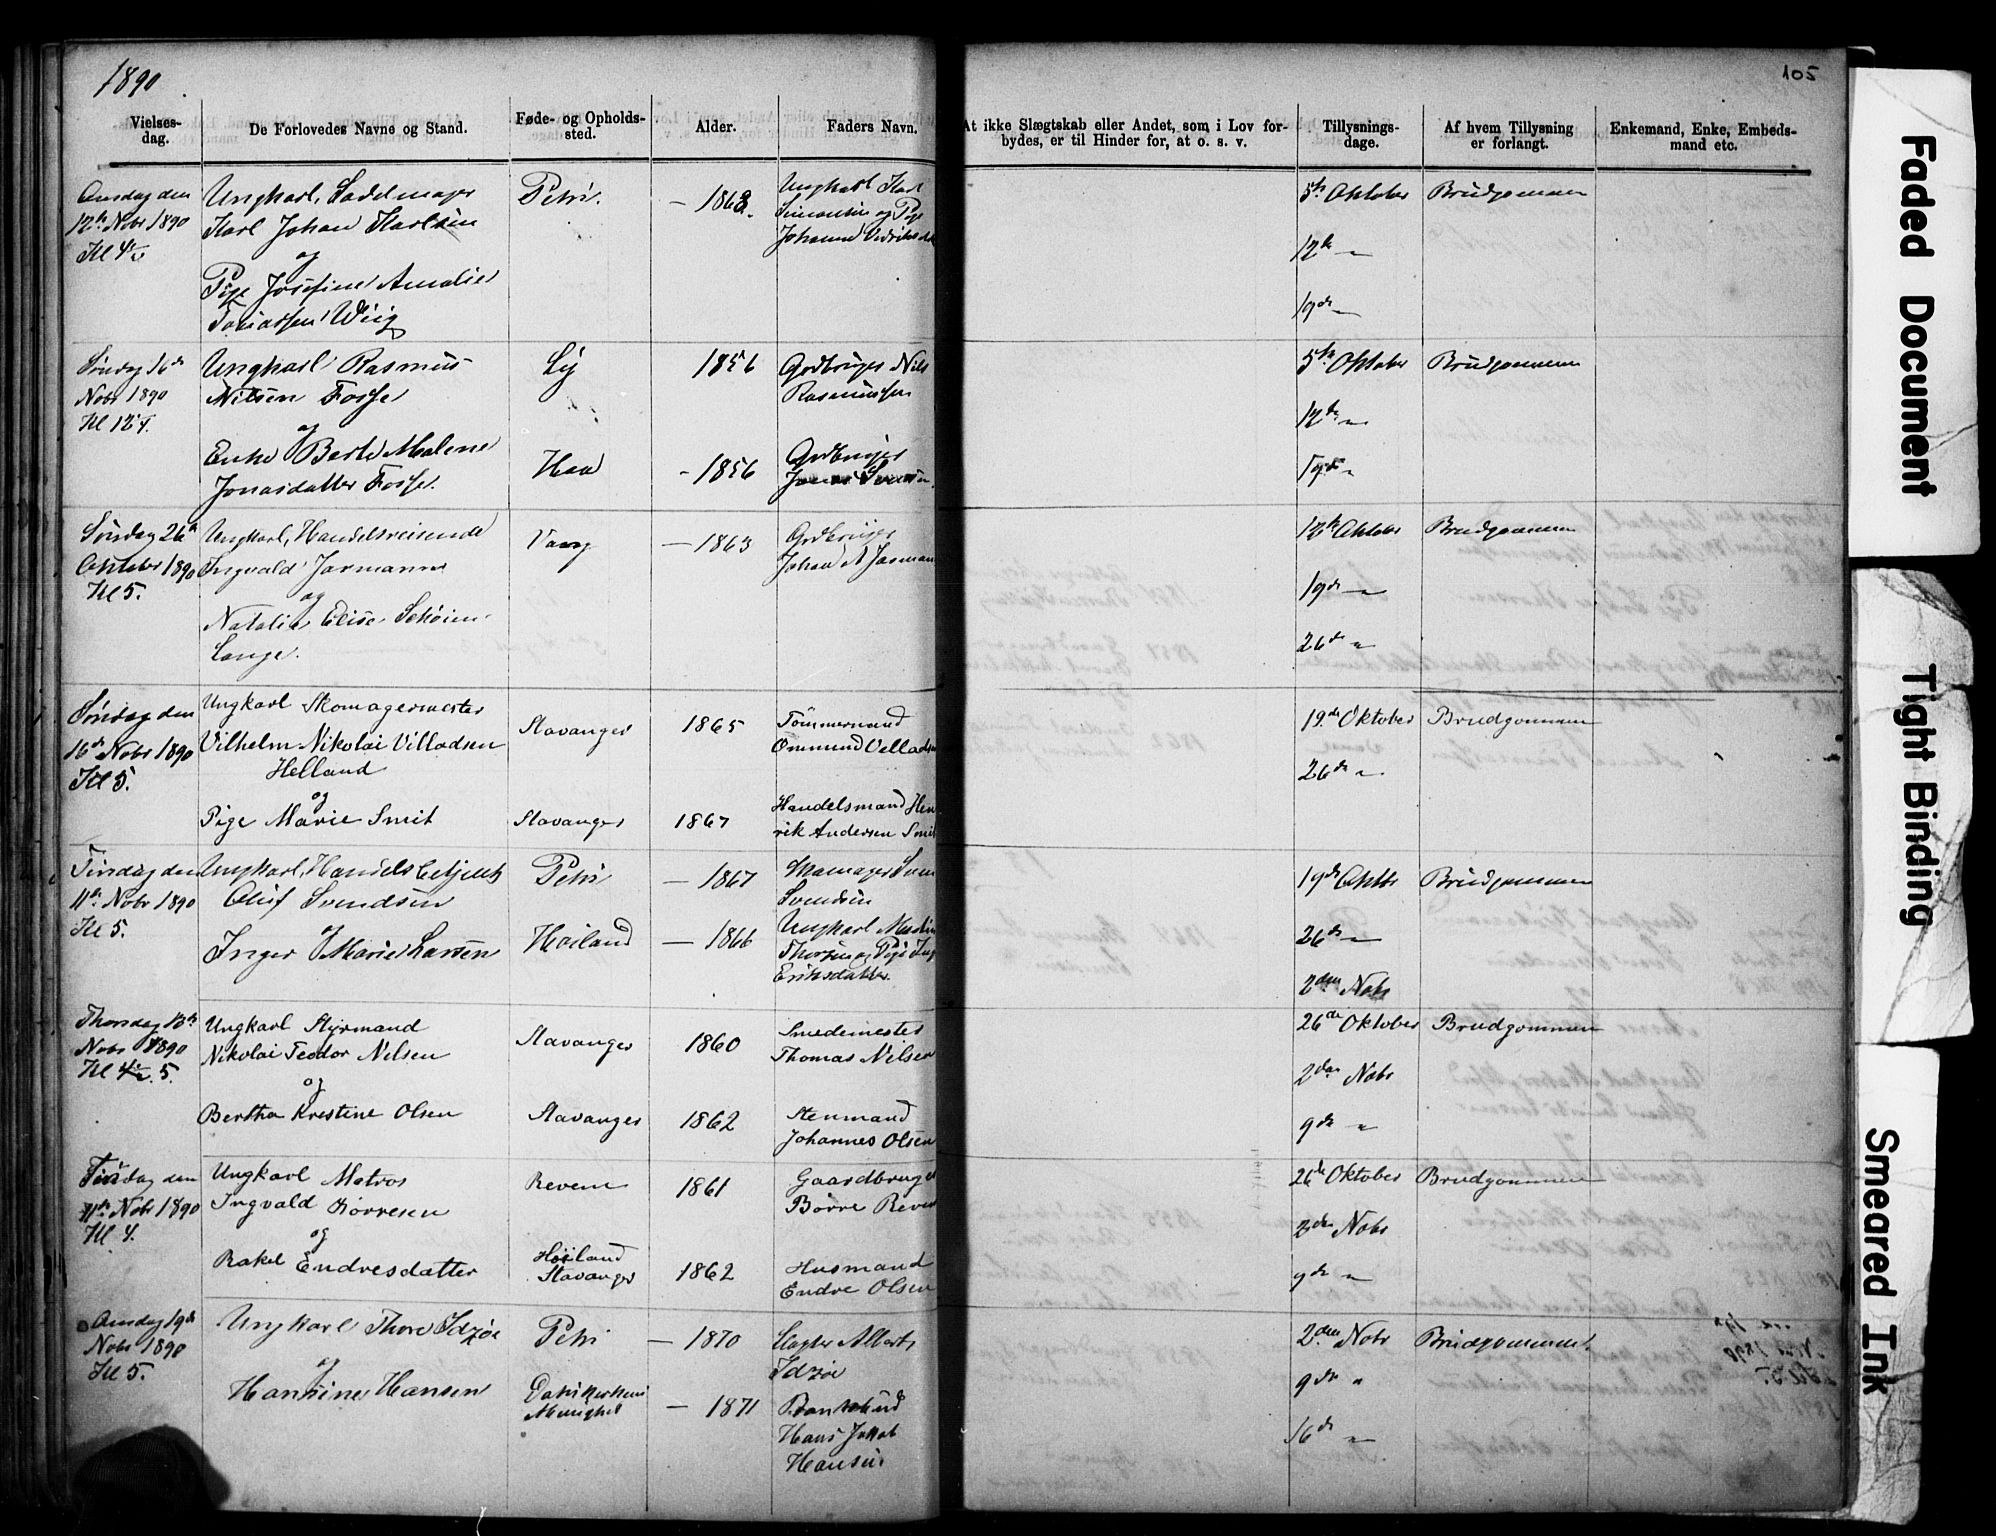 1890
105
Vielses-
dag.
De Forlovedes Navne og Stand.
Føde- og Opholds-
sted.
Alder.
Faders Navn.
At ikke Slægtskab eller Andet, som i Lov for-
bydes, er til Hinder for, at o. s. v.
Tillysnings-
dage.
Af hvem Tillysning
er forlangt.
Enkemand, Enke, Embeds-
mand etc.
Onsdag den
12te Nobr 1890
Kl 4½
Ungkarl, Sadelmager
Karl Johan Karlsen
og
Pige Josefine Amalie
Tobiassen Wiig
Petri.
— 1868.
Ungkarl Karl
Simonsen og Pige
Johanne
5te Oktober
12te "
19de "
Brudgommen
Søndag 16de
Nobr 1890
Kl 12¼.
Ungkarl Rasmus
Nilsen Fosse
og
Enke Berte Malene
Jonasdatter Fosse.
Ly
Haa
1856
- 1856
Grdbruger Nils
Rasmussen
Grdbruger
Jonas
5te Oktober
12te "
19de "
Brudgommen
Søndag 26de
Oktober 1890
Kl 5.
Ungkarl, Handelsreisende
Ingvald Jarmann
og
Natalie Elise Schøien
Lange.
Vang
— 1863
Grdbruger
Johan A Jarmann
12te Oktober
19de "
26de "
Brudgommen
Søndag den
16de Nobr 1890
Kl 5.
Ungkarl Skomagermester
Vilhelm Nikolai Villadsen
Helland
og
Pige Marie Smit
Stavanger
Stavanger
1865
1867
Tømmermand
Ommund Velladsen
Handelsmand Hen
rik Andersen Smit
19de Oktober
26de "
Brudgommen
Tirsdag den
11te Nobr 1890
Kl 5.
Ungkarl, Handelsbetjent
Oluf Svendsen
og
Inger Marie Larsen
Petri
Høiland
— 1867
— 1866
Skomager Sven
Svendsen
Ungkarl
og Pige
Eriksdatter
19de Oktbr
26de "
2den Nobr
Brudgommen
Thorsdag 13de
Nobr 1890
Kl 4½. 5.
Ungkarl Styrmand
Nikolai Teodor Nilsen
og
Bertha Kristine Olsen
Stavanger
Stavanger
1860
1862
Smedemester
Thomas Nilsen
Stenmand
Johannes Olsen
26de Oktober
2den Nobr
9de "
Brudgommen
Tirsdag den
11te Nobr 1890
Kl 4.
Ungkarl Matros
Ingvald Børresen
og
Rakel Endresdatter
Reveim
Høiland
Stavanger
1861
1862
Gaardbruger
Børre Reveim
Husmand
Endre Olsen
26de Oktober
2den Nobr
9de "
Brudgommen
Onsdag 19de
Nobr 1890
Kl 5.
Ungkarl Thore Idzøe
og
Hansine Hansen
Petri
Domkirkens
Menighed
— 1870
— 1871
Slagter Albert
Idzøe
Bankbud
Hans Jakob
Hansen
2den Nobr
9de "
16de "
Brudgommen
Faded Document
Tight Binding
Smeared Ink